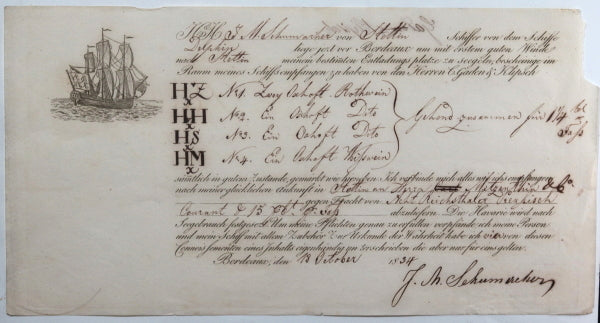 Ich J. M. Schumacher von Stettin Schiffer von dem Schiffe
Delphin liege jezt vor Bordeaux um mit erstem guten Winde
nach Stettin meinem bestimten Entladungs platze zu seegelen, bescheinige im
Raum meines Schiffs empfangen zu haben von den Herren C. Gaden & Klipsch
HZ No. 1. Zwey Oxhoft Rothwein
HH No. 2. Ein Oxhoft Dito
HS No. 3. Ein Oxhoft Dito
HM No. 4. Ein Oxhoft
zusammen für 1 1/4
sämtlich in gutem Zustande, gemarkt wie hiervor. Ich verbinde mich alles was ich empfangen
nach meiner glücklichen Ankunft in Stettin an Herrn
gegen Fracht von Reichsthaler Preusisch
Courant & 15 abzuliefern. Die Havarie wird nach
Seegebrauch festgesezt. Um meine Pflichten genau zu erfüllen verpfände ich meine Person
und mein Schiff mit allem Zubehör. Zur Urkunde der Wahrheit habe ich vier von diesen
Connossementen eines Inhalts eigenhändig unterschrieben die aber nur für eins gelten.
Bordeaux, den 18 October 1834
J. M. Schumacher